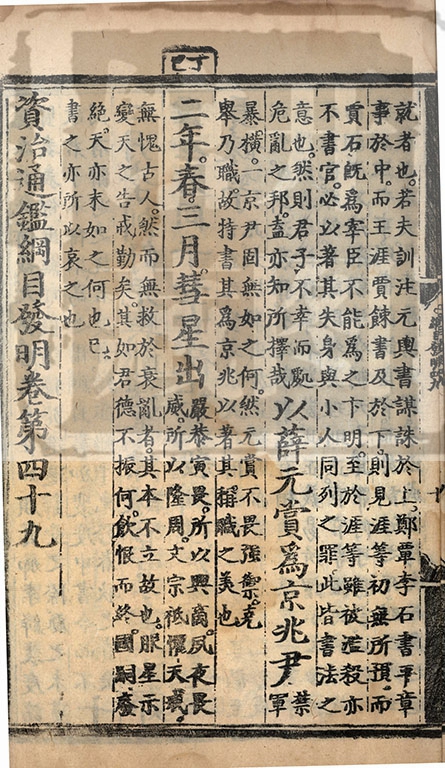 就者也若夫訓注元輿書謀誅於上鄭覃李石書平章
事於中而王涯賈餗書及於下則見涯等初無所預而
賈石旣爲宰臣不能爲之卞明至於涯等雖被濫殺亦
不書官必以著其失身與小人同列之罪此皆書法之
意也然則君子不幸而處
危亂之邦盍亦知所擇哉
以薛元賞爲京兆尹
禁
軍
暴橫一京尹固無如之何然元賞不畏强禦克
擧乃職故特書其爲京兆以著其稱職之美也
丁巳
二年春三月彗星出
嚴恭寅畏所以興商夙夜畏
威所以隆周文宗祗懼天戒
無愧古人然而無救於衰亂者其本不立故也星示
變天之告戒勤矣其如君德不振何飮恨而終國嗣廢
絕天亦末如之何也已
書之亦所以哀之也
資治通鑑綱目發明卷第四十九